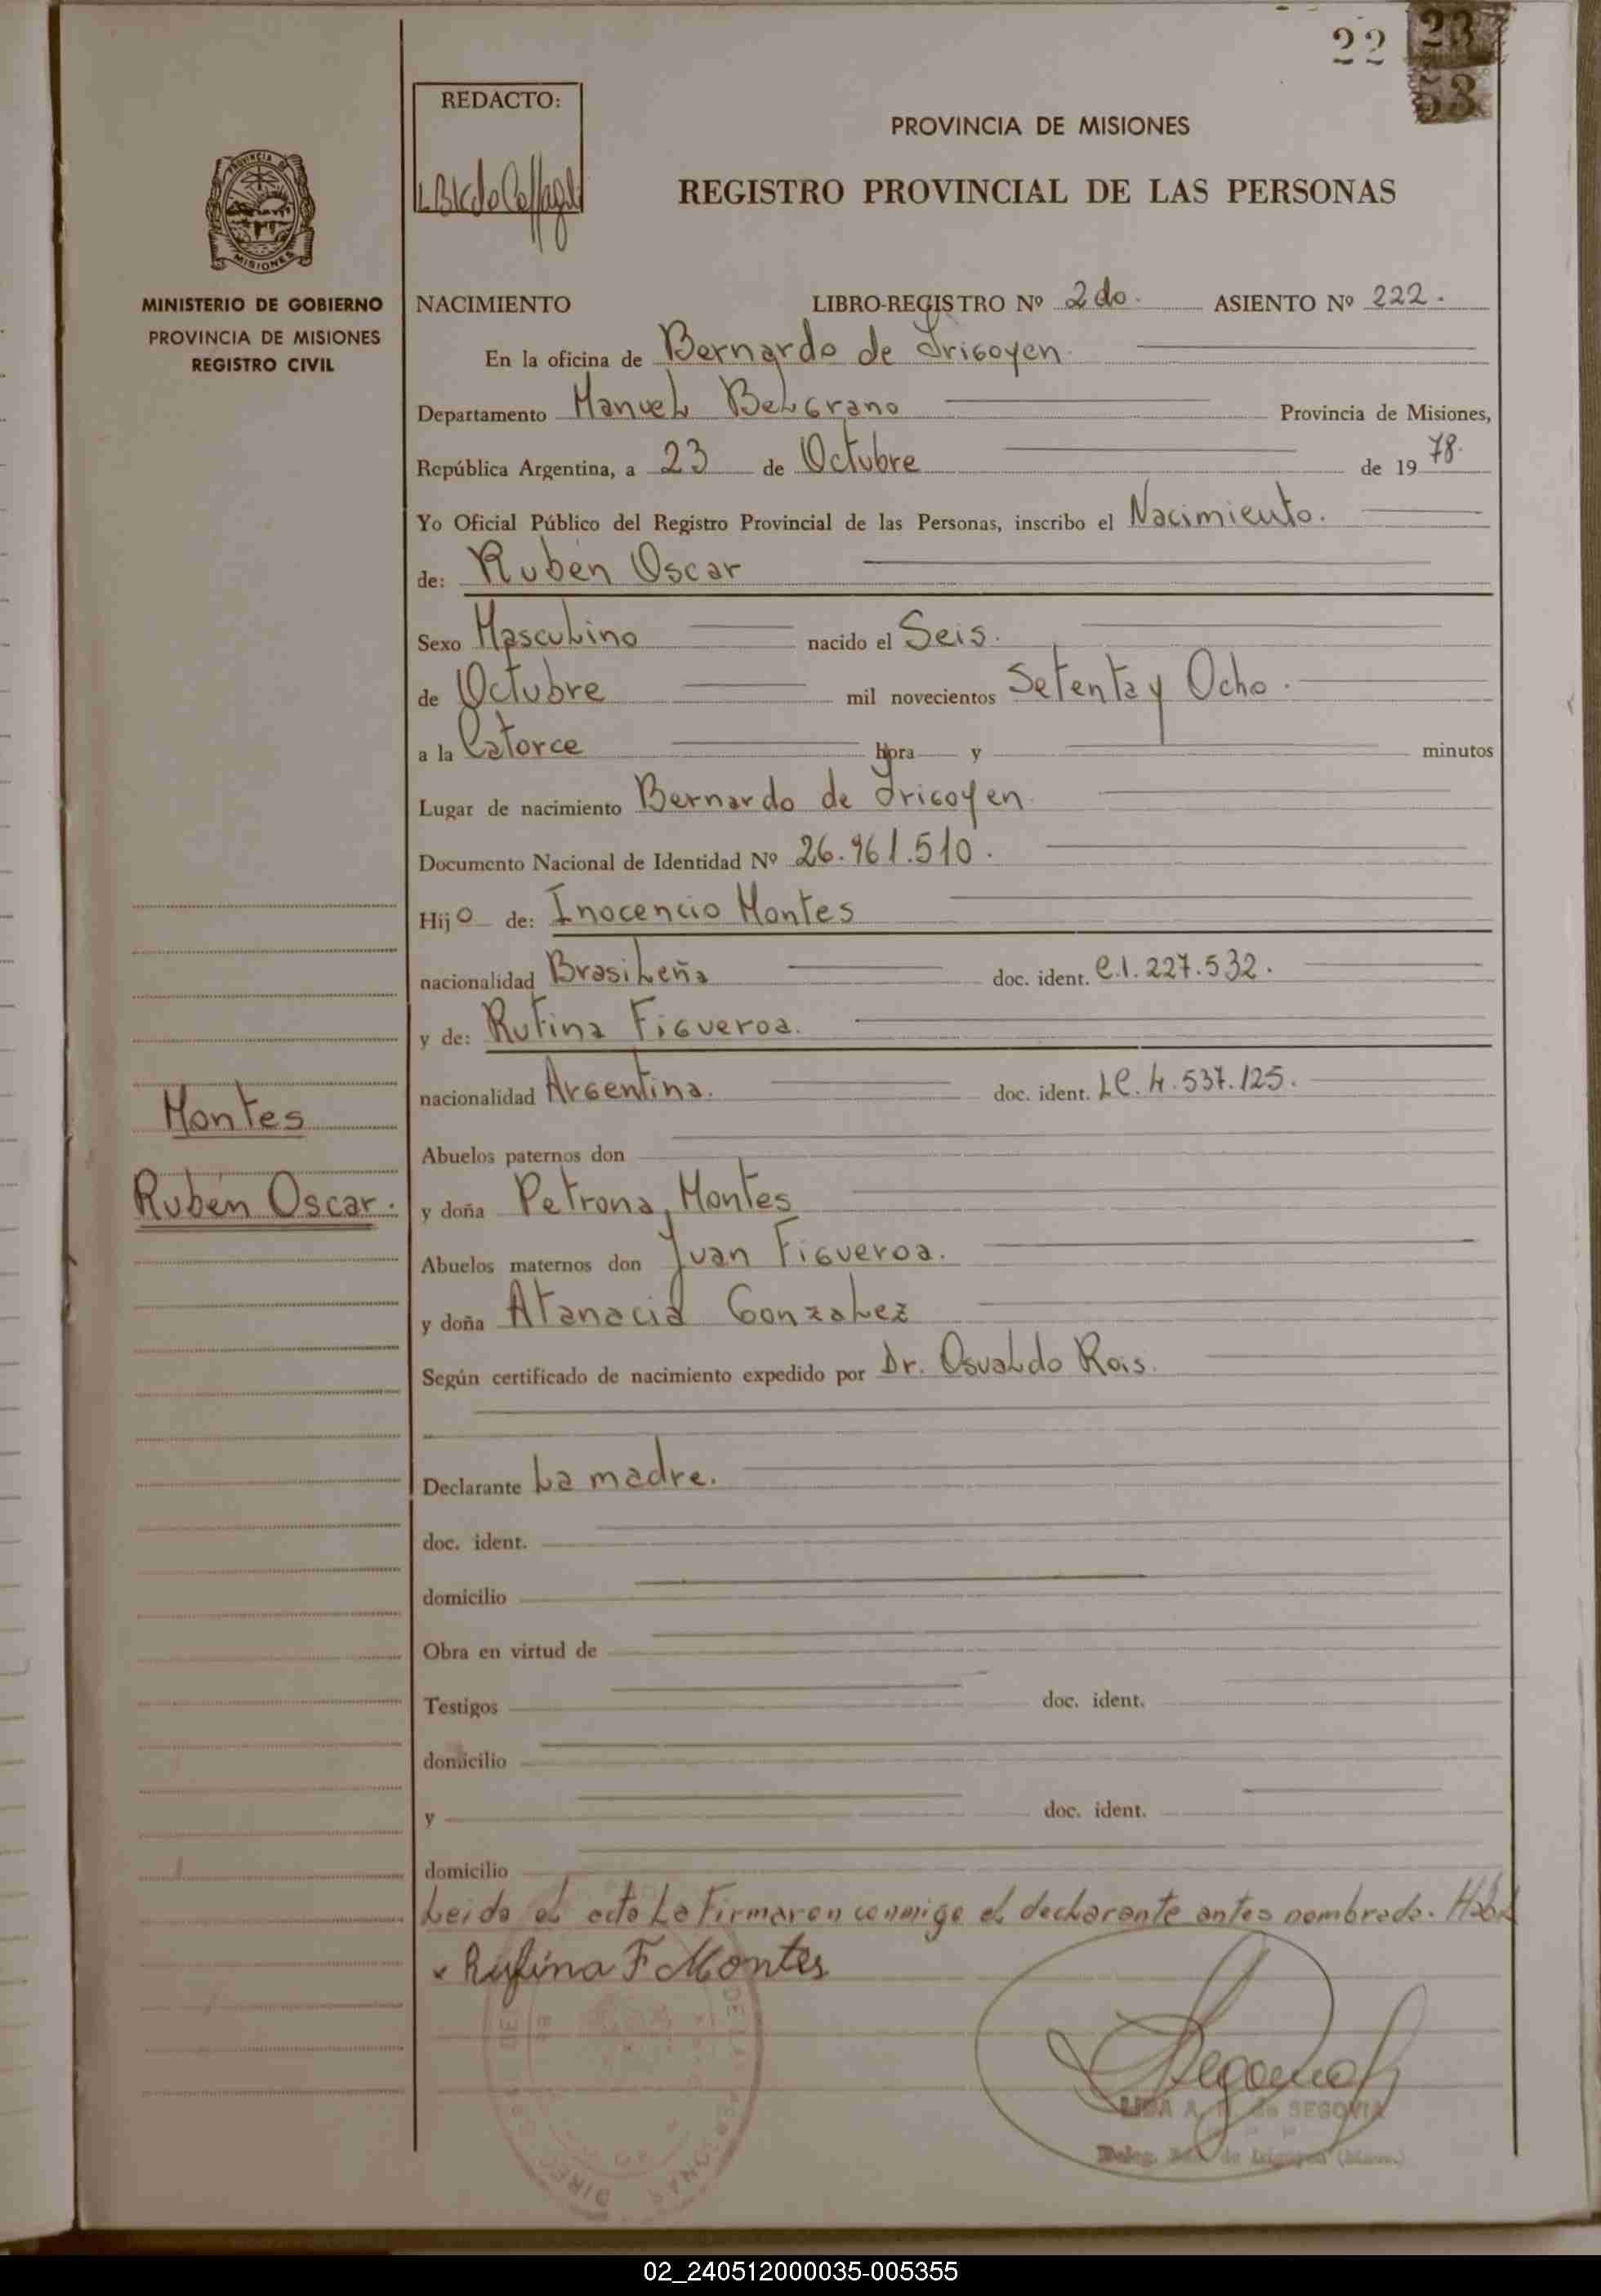 22 23
53
REDACTO:
PROVINCIA DE MISIONES
REGISTRO PROVINCIAL DE LAS PERSONAS
PROVINCIA DE
MISIONES
MINISTERIO DE GOBIERNO
PROVINCIA DE MISIONES
REGISTRO CIVIL
NACIMIENTO LIBRO-REGISTRO Nº 2do. ASIENTO Nº 222.
En la oficina de Bernardo de Irigoyen
Departamento Manuel Belgrano Provincia de Misiones,
República Argentina, a 23 de Octubre de 1978.
Yo Oficial Público del Registro Provincial de las Personas, inscribo el Nacimiento.
de: Rubén Oscar
Sexo Masculino nacido el Seis.
de Octubre mil novecientos Setenta y Ocho.
a la Catorce hora y minutos
Lugar de nacimiento Bernardo de Irigoyen
Documento Nacional de Identidad Nº 26.961.510.
Hijo de: Inocencio Montes
nacionalidad Brasileña doc. ident. C.I. 227.532.
y de: Rufina Figueroa.
nacionalidad Argentina. doc. ident. LC. 4.537.125.
Abuelos paternos don
y doña Petrona Montes
Abuelos maternos don Juan Figueroa.
y doña Atanacia Gonzalez
Según certificado de nacimiento expedido por Dr. Osvaldo Rois.
Declarante La madre.
doc. ident.
domicilio
Obra en virtud de
Testigos doc. ident.
domicilio
y doc. ident.
domicilio
Leido el acto La Firmaron conmigo el declarante antes nombrado.
x Rufina F Montes
Montes
Rubén Oscar.
LIDA A. de SEGOVIA
02_240512000035-005355